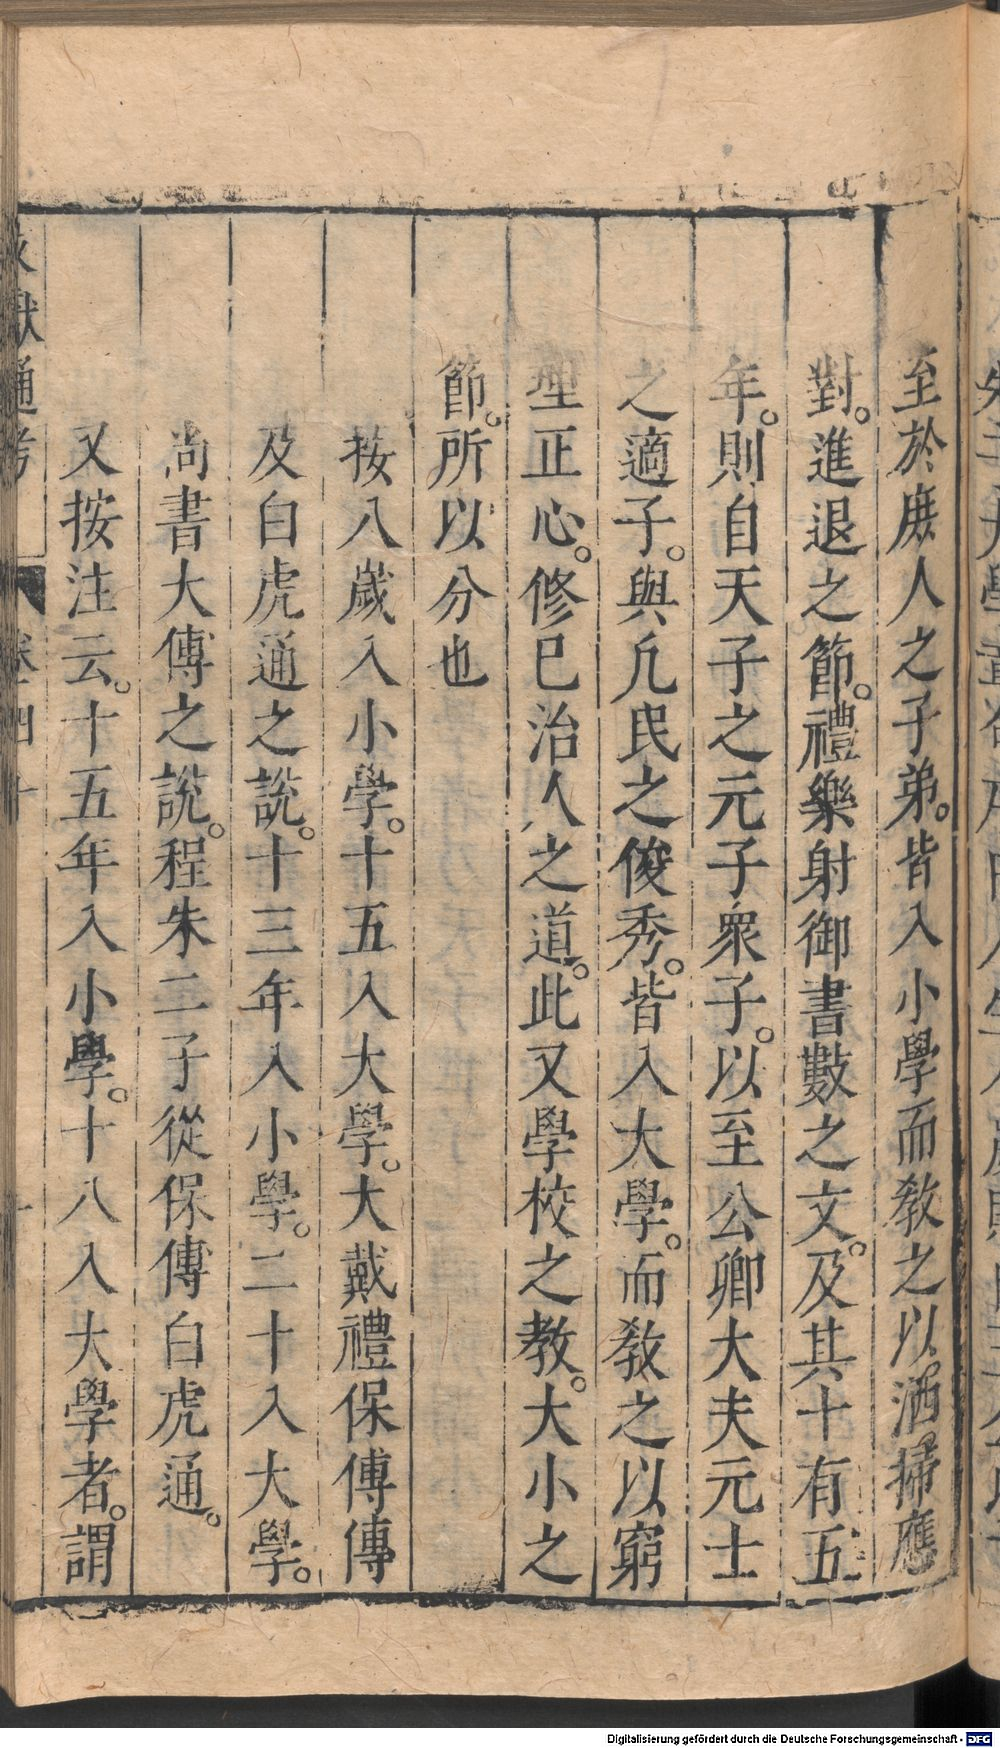 至於庶人之子弟。皆入小學而敎之以。洒。掃應
對。進退之節。禮樂射御書數之文。及其十有五
年。則自天子之元子衆子。以至公卿大夫元士
之適子。與凡民之俊秀。皆入大學。而敎之以窮
理正心。修已治人之道。此又學校之教。大小之
節。所以分也
按八歲入小學。十五入大學。大戴禮保傅傳
及白虎通之說。十三年入小學。二十入大學。
尚書大傳之說。程朱二子從保傅白虎通。
又按注云。十五年入小學。十八入大學者。謂
文獻通考 卷之四十
Digitalisierung gefördert durch die Deutsche Forschungsgemeinschaft - DFG